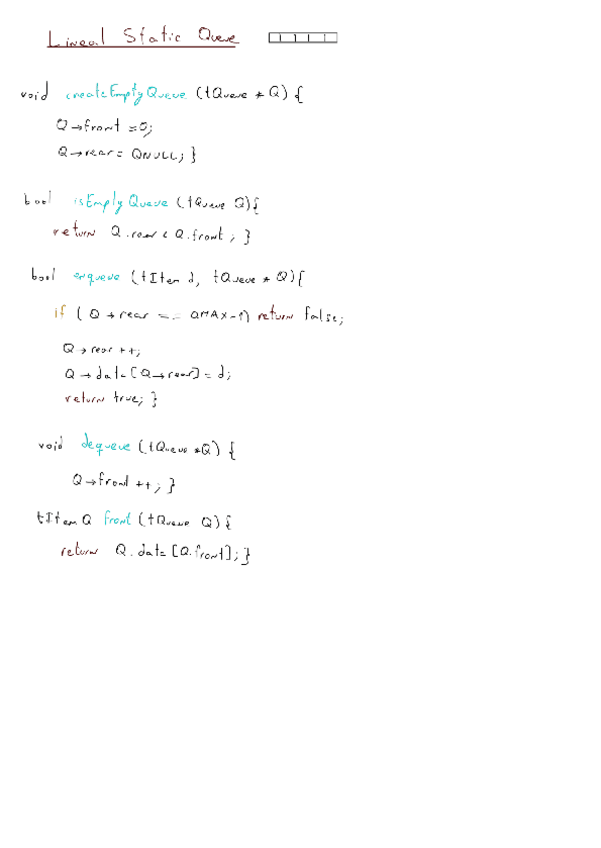 Lineal Static Queue
void createEmptyQueue (tQueue * Q) {
Q→front =0;
Q→rear= QNULL; }
bool isEmptyQueue (tQueue Q){
return Q.rear < Q.front ; }
bool enqueue (tItem d, tQueue * Q){
if ( Q →rear == QMAX-1) return false;
Q→ rear ++;
Q → data[Q→rear] = d;
return true; }
void dequeue (tQueue *Q) {
Q→front ++; }
tItemQ front (tQueue Q) {
return Q.data [Q.front]; }